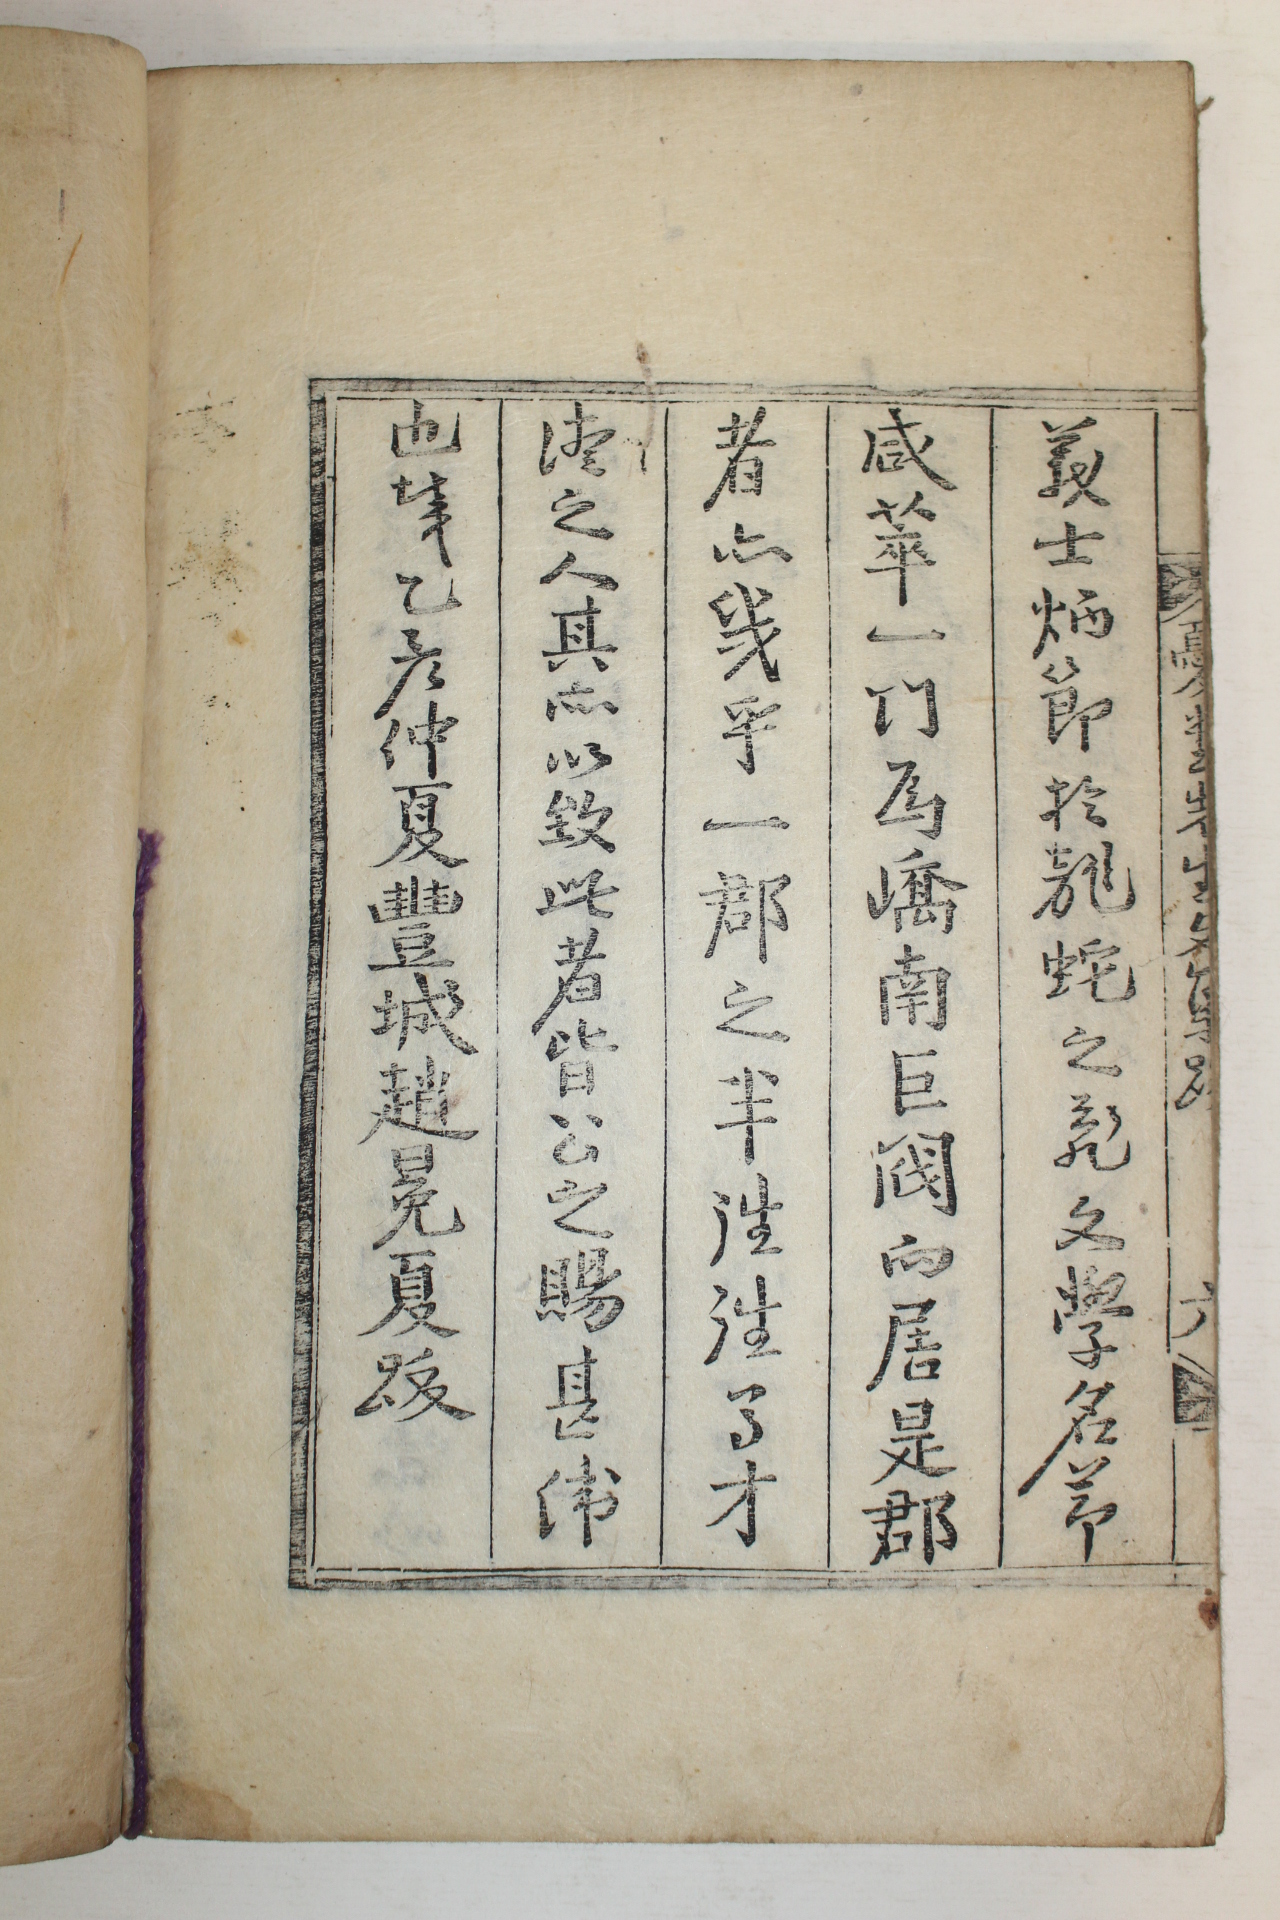 義士炳節於龍蛇之亂文學名節
咸萃一門爲嶠南巨閥向居是郡
者亦幾乎一郡之半往往多才
之人其所以致此者皆公之賜甚偉
也歲乙亥仲夏豐城趙冕夏跋
六